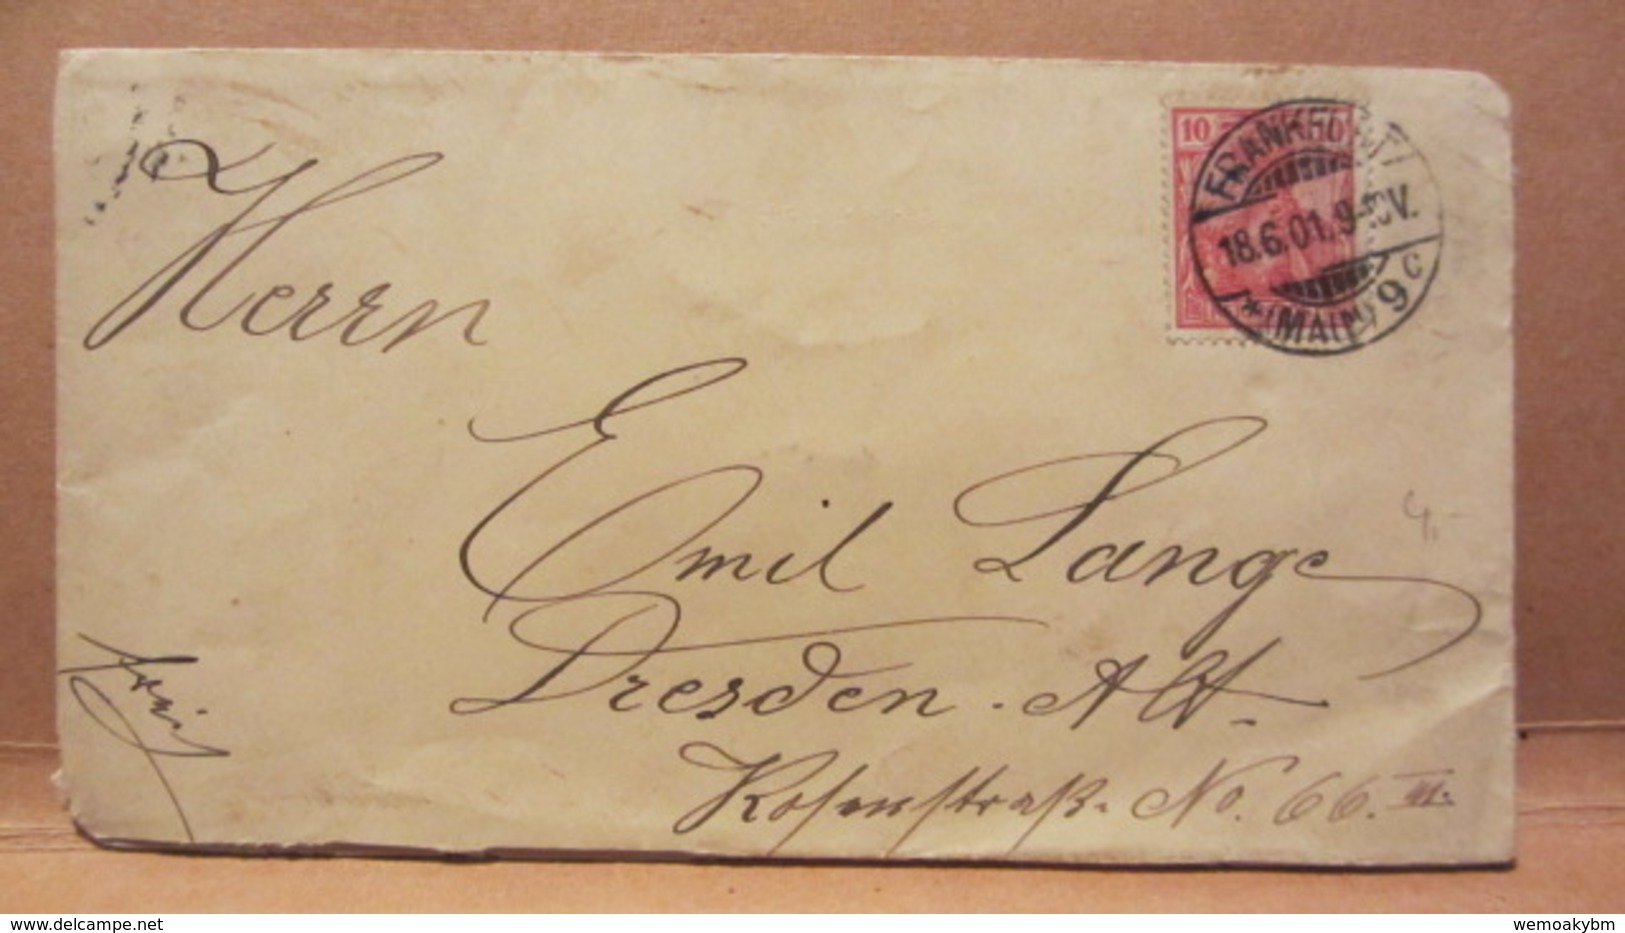 10
FRANKFURT
18.6.01.9-10V.
* (MAIN) 9 c
Herrn
Emil Lange
Dresden. Alt-
frei
Rosenstraß. No. 66. III.
4,-
© www.delcampe.net
wemoakybm